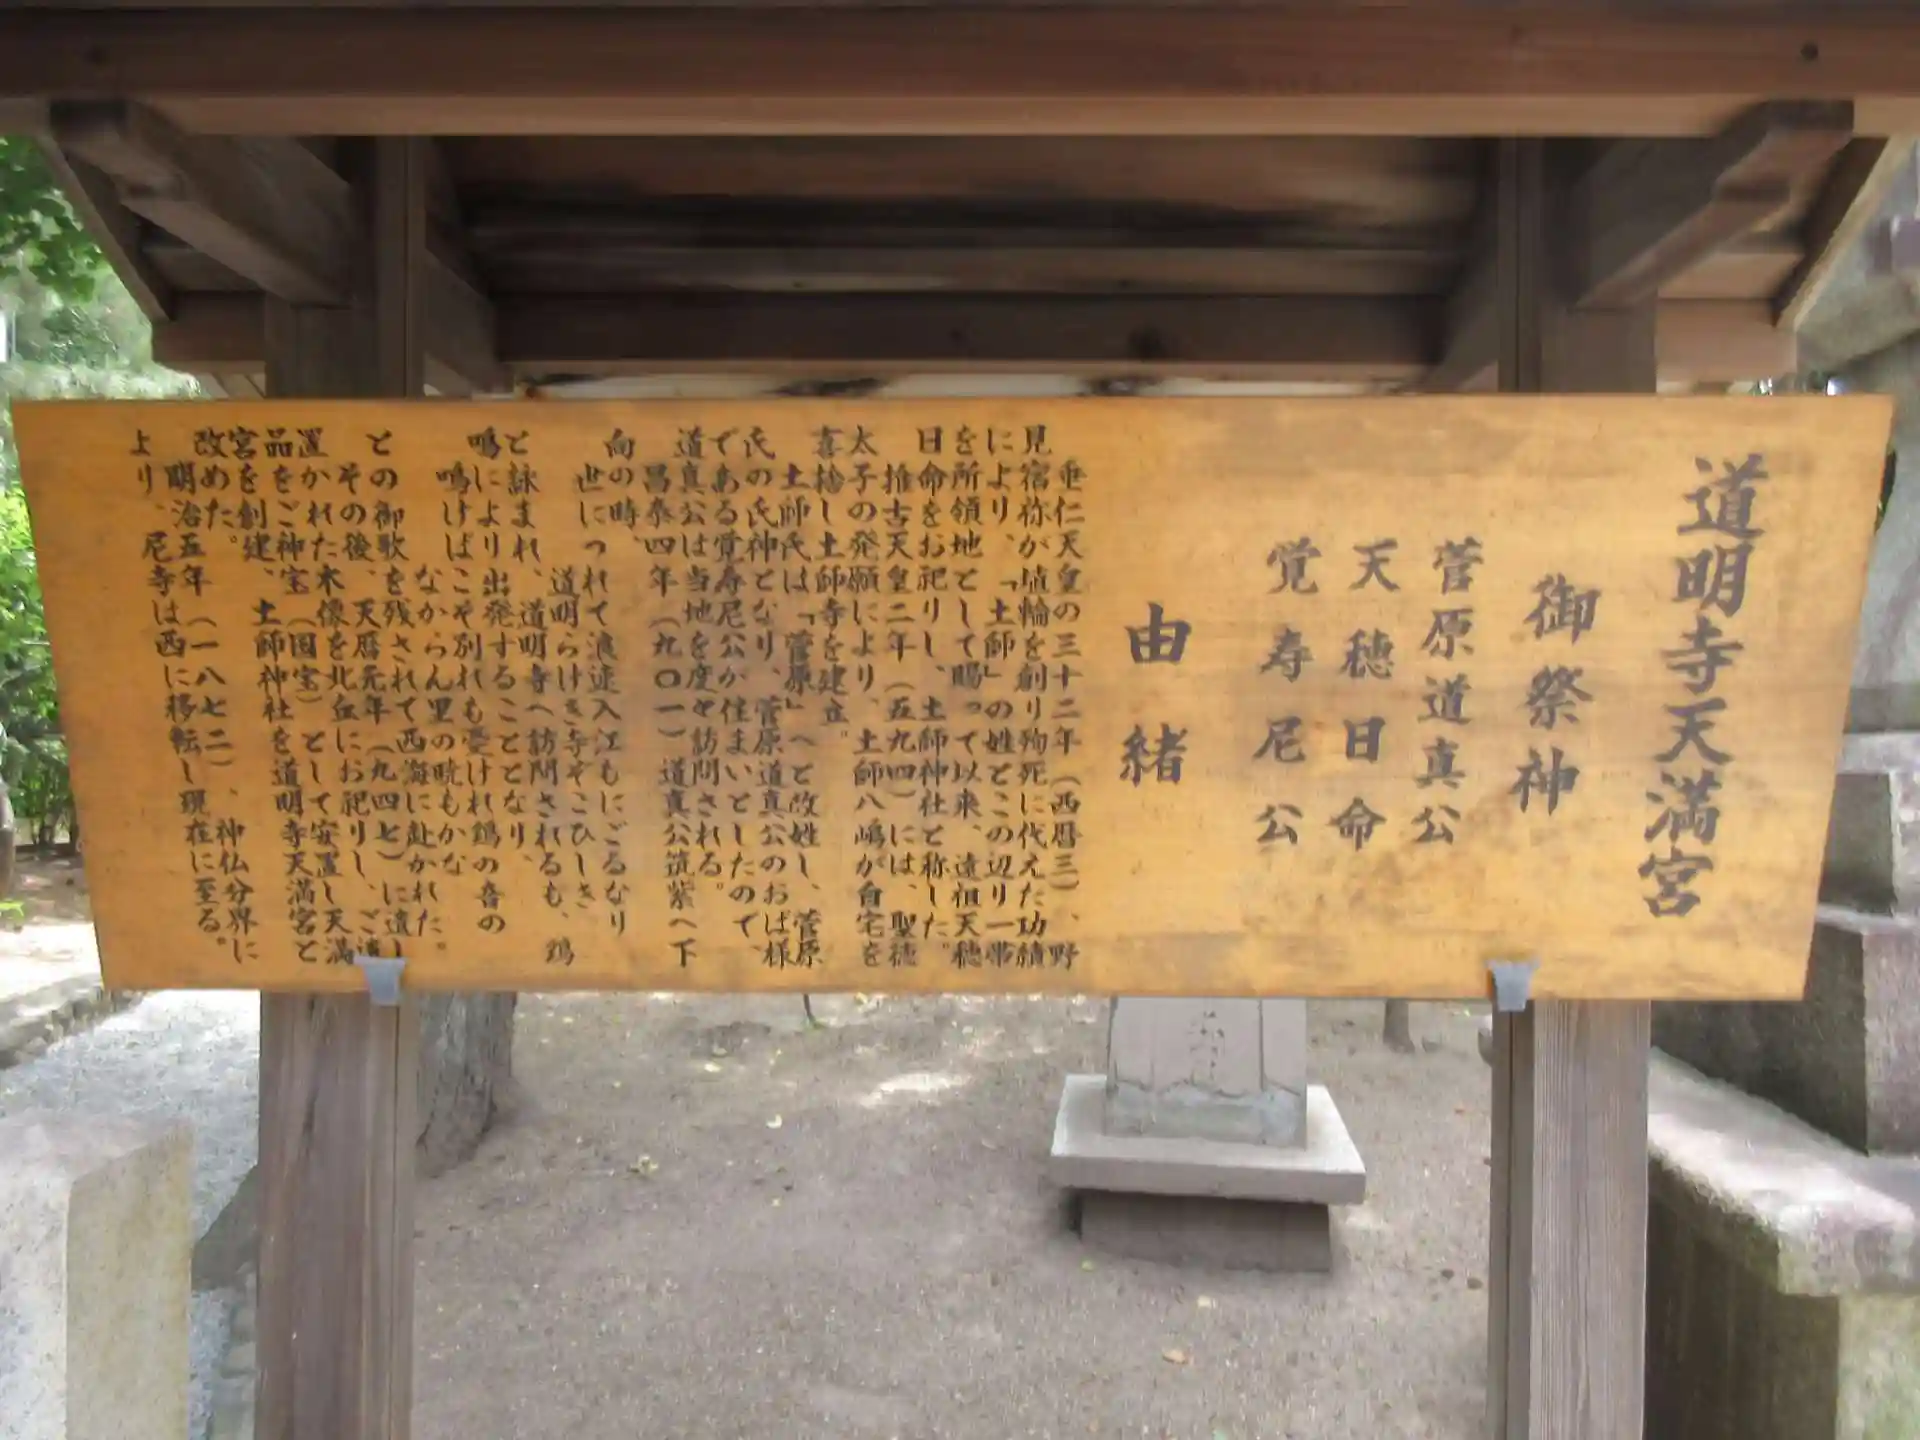 道明寺天満宮
御祭神
菅原道真公
天穂日命
覚寿尼公
由緒
垂仁天皇の三十二年（西暦三）、野
見宿祢が埴輪を創り殉死に代えた功績
により、「土師」の姓とこの辺り一帯
を所領地として賜って以来、遠祖天穂
日命をお祀りし、土師神社と称した。
推古天皇二年（五九四）には、聖徳
太子の発願により、土師八嶋が自宅を
喜捨し土師寺を建立。
土師氏は「菅原」へと改姓し、菅原
氏の氏神となり、菅原道真公のおば様
である覚寿尼公が住まいとしたので、
道真公は当地を度々訪問される。
昌泰四年（九〇一）道真公筑紫へ下
向の時、
世につれて浪速入江もにごるなり
道明らけき寺ぞこひしき
と詠まれ、道明寺へ訪問されるも、鶏
鳴により出発することとなり、
鳴けばこそ別れも憂けれ鶏の音の
なからん里の暁もかな
との御歌を残されて西海に赴かれた。
その後、天暦元年（九四七）に遺し
置かれた木像を北血にお祀りし、ご遺
品をご神宝（国宝）として安置し天満
宮を創建、土師神社を道明寺天満宮と
改めた。
明治五年（一八七二）、神仏分界に
より、尼寺は西に移転し現在に至る。